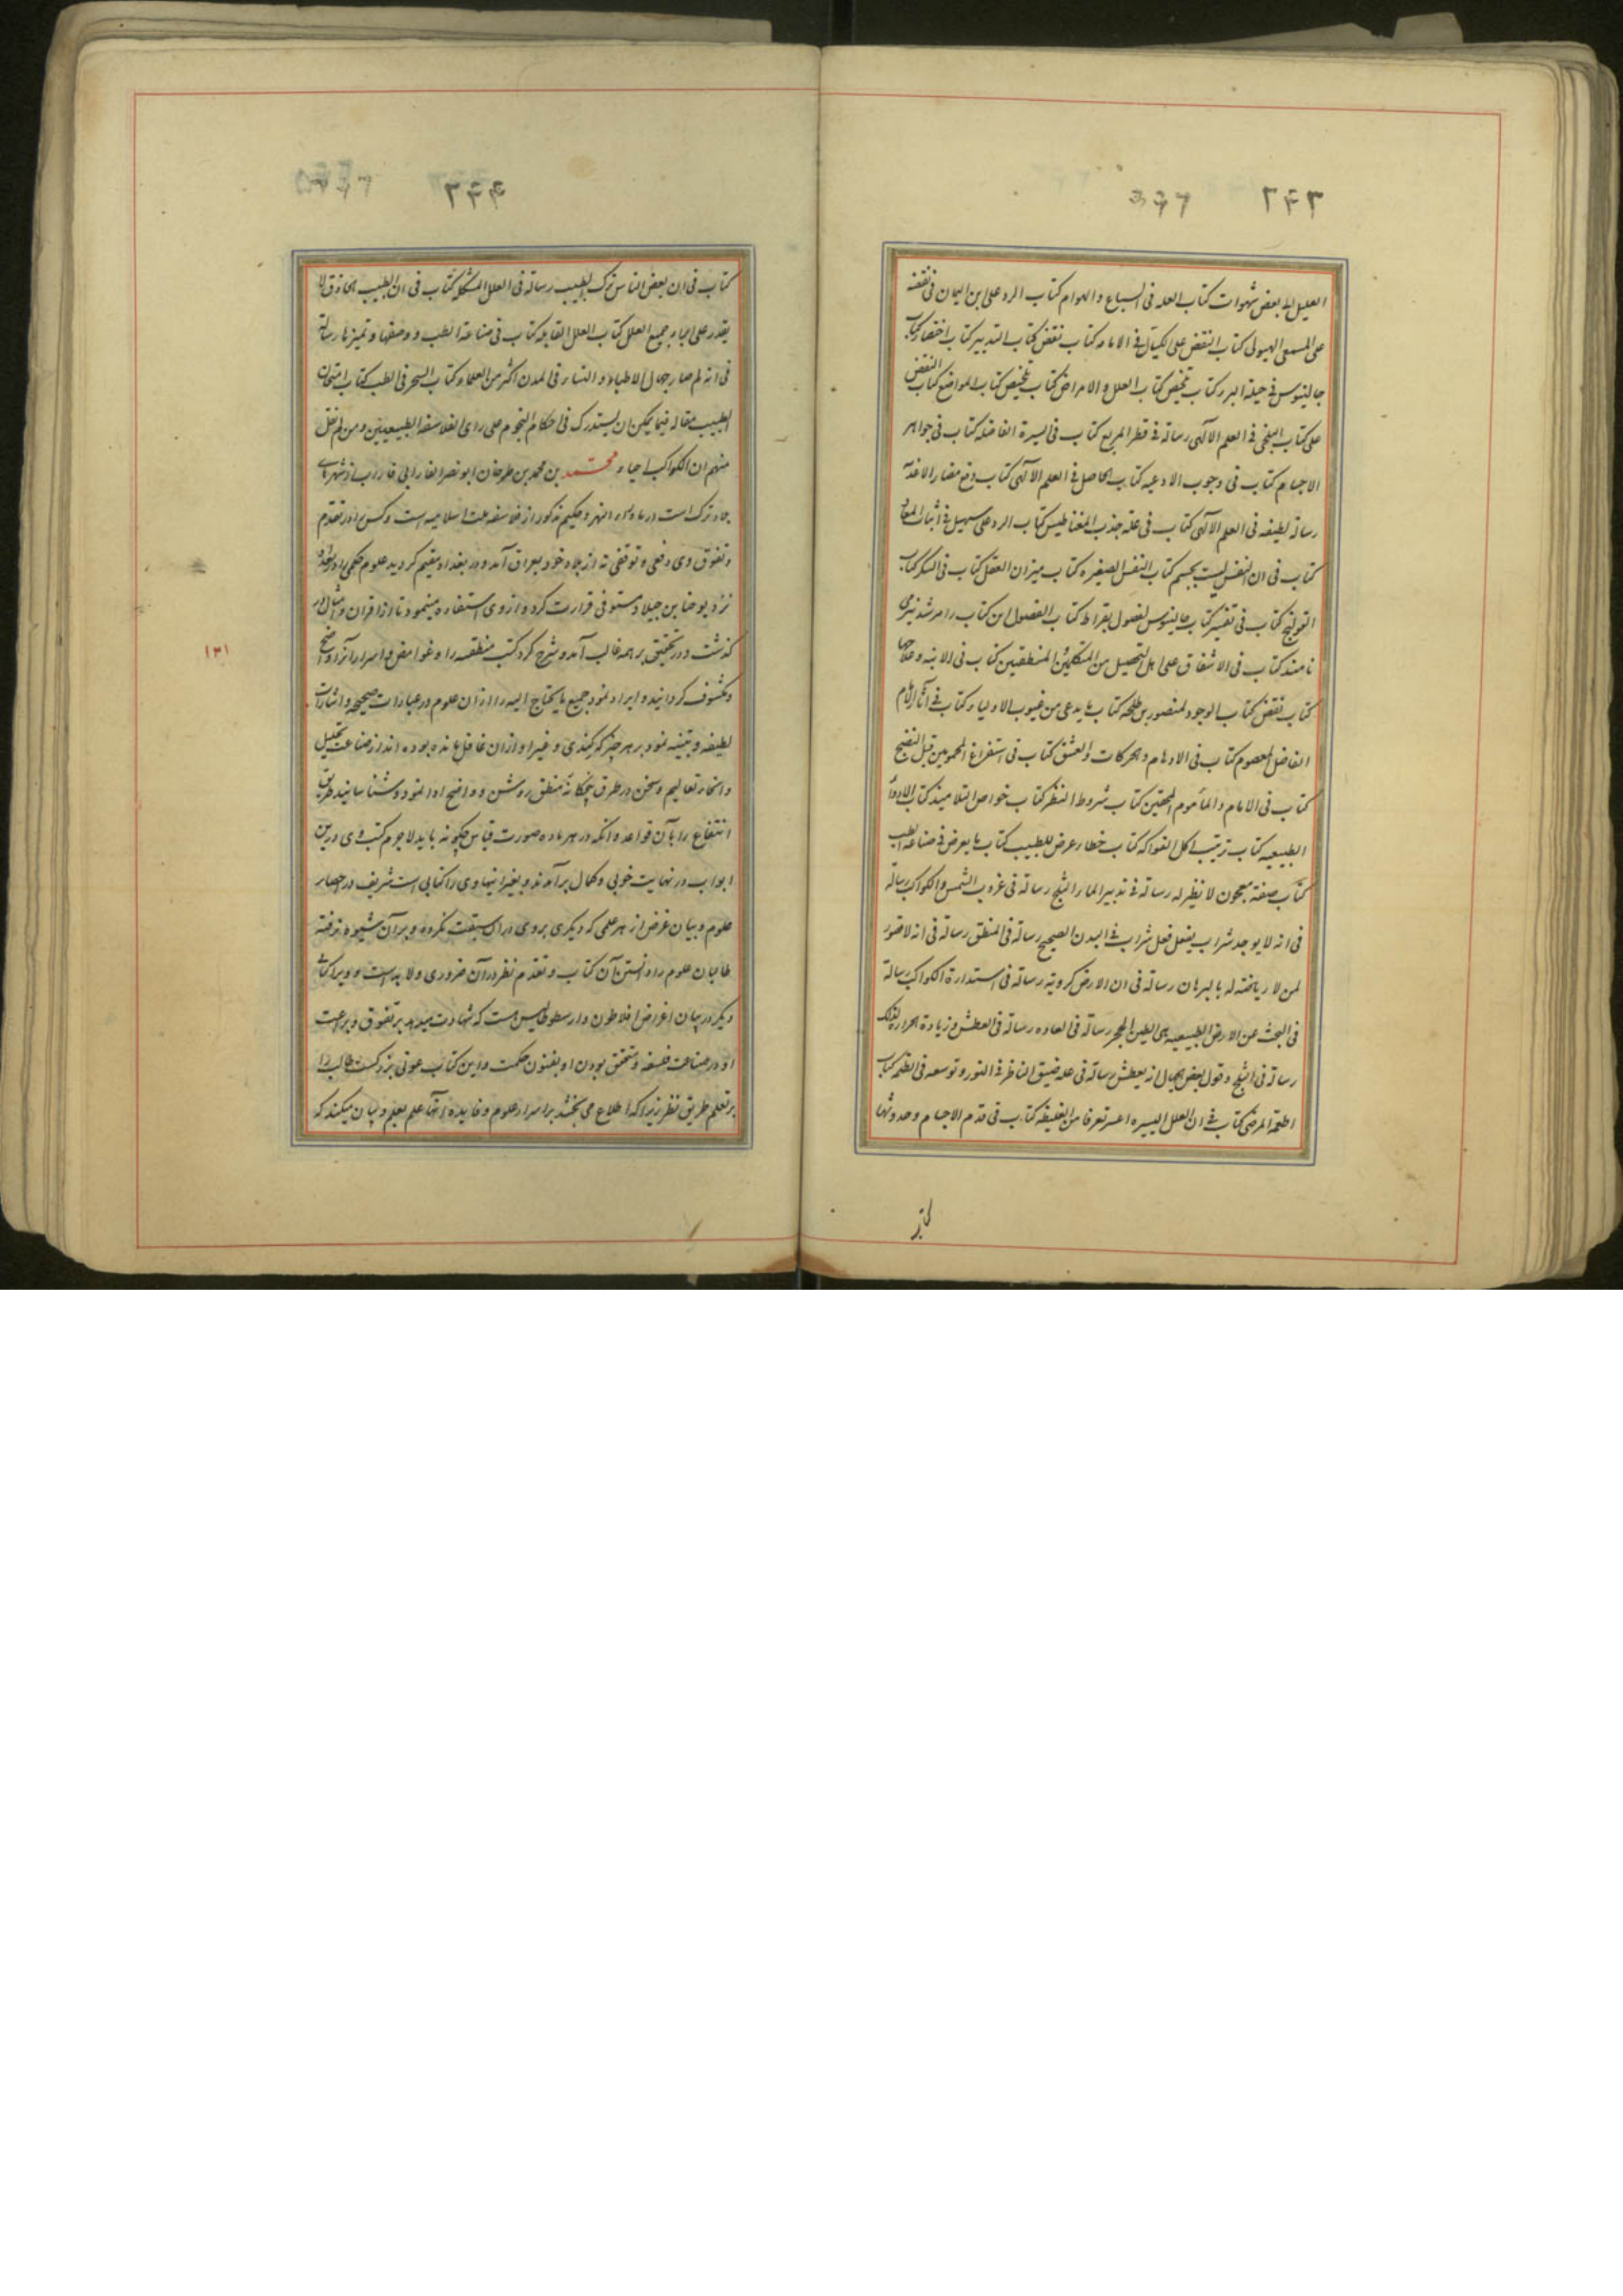 ۲۴۳
العلیل الی بعض شهوات کتاب العله فی السباع و الهوام کتاب الرد علی ابن الیمان فی نقضه
علی المسمعی الهیولی کتاب النقض علی الکیال فی الامامه کتاب نقض کتاب التدبیر کتاب اختصار کتاب
جالینوس فی حیلة البرء کتاب تلخیص کتاب العلل و الامراض کتاب تلخیص کتاب المواضع کتاب النقض
علی کتاب البلخی فی العلم الالهی رسالة فی قطر المربع کتاب فی السیرة الفاضله کتاب فی جواهر
الاجسام کتاب فی وجوب الادعیه کتاب الحاصل فی العلم الالهی کتاب دفع مضار الاغذیة
رسالة لطیفه فی العلم الالهی کتاب فی علة جذب المغناطیس کتاب الرد علی سهیل فی اثبات المعاد
کتاب فی ان النفس لیست بجسم کتاب النفس الصغیره کتاب میزان العقل کتاب فی السکر کتاب
القولنج کتاب فی تفسیر کتاب جالینوس لفصول بقراط کتاب الفصول این کتاب را مرشد نیز می
نامند کتاب فی الاشفاق علی اهل التحصیل من المتکلمین المنطقیین کتاب فی الابنه و علاجها
کتاب نقض کتاب الوجود لمنصور بن طلحه کتاب ما یدعی من عیوب الاولیاء کتاب فی آثار الامام
الفاضل المعصوم کتاب فی الاوهام و الحرکات و العشق کتاب فی استفراغ المحمومین قبل النضج
کتاب فی الامام و المأموم المحقین کتاب شروط النظر کتاب خواص التلامیذ کتاب الاراء
الطبیعیه کتاب ترتیب اکل الفواکه کتاب خطاء غرض للطبیب کتاب ما یعرض فی صناعة الطب
کتاب صفة معجون لا نظیر له رسالة فی تدبیر الماء و الثلج رسالة فی غروب الشمس و الکواکب رسالة
فی انه لا یوجد شراب یفعل فعل شراب فی البدن الصحیح رسالة فی المنطق رسالة فی انه لا تصور
لمن لا ریاضة له بالبرهان رسالة فی ان الارض کرویة رسالة فی استدارة الکواکب رسالة
فی البحث عن الارض الطبیعیه هی الطین ام الحجر رسالة فی العاده رسالة فی العطش و زیادة الحرارة لذلک
رسالة فی الثلج و قول بعض الجهال انه یعطش رسالة فی علة ضیق الناظر فی النور و توسعه فی الظلمه کتاب
اطعمة المرضی کتاب فی ان العلل الیسیره اعسر تعرفا من الغلیظه کتاب فی قدم الاجسام و حدوثها
۲۴۴
کتاب فی ان بعض الناس ترک الطبیب رسالة فی العلل المشکله کتاب فی ان الطبیب الحاذق لا
یقدر علی ابراء جمیع العلل کتاب العلل القاتله کتاب فی صناعة الطب و وصفها و تمیزها رسالة
فی انه لم صار جهال الاطباء و النساء فی المدن اکثر من العلماء کتاب السحر فی الطب کتاب امتحان
الطبیب مقاله فیما یمکن ان یستدرک فی احکام النجوم علی رای الفلاسفه الطبیعیین و من لم یقل
منهم ان الکواکب احیاء محمد بن محمد بن طرخان ابو نصر الفارابی فاراب از شهرهای
بلاد ترک است در ماوراء النهر و حکیم مذکور از فلاسفه ملت اسلامیه است و کس را در تقدم
و تفوق وی دفعی و توقفی نه از بلاد خود بعراق آمده در بغداد مقیم گردید علوم حکمی را در بغداد
نزد یوحنا بن جیلاد متوفی قرائت کرد و از وی استفاده مینمود تا از اقران و امثال در
گذشت و در تحقیق بر همه غالب آمد و شرح کرد کتب منطقیه را و غوامض و اسرار آنرا واضح
و مکشوف گردانید و ایراد نمود جمیع ما یحتاج الیه را از آن علوم در عبارات صحیحه و اشارات
لطیفه و تنبیه نمود بر هر چیز که کندی و غیر او از آن غافل مانده بوده اند از صناعت تحلیل
و انحاء تعالیم و سخن در طرق پنجگانه منطق روشن و واضح ادا نمود و شناسانید طریق
انتفاع را بآن قواعد و آنکه در هر ماده صورت قیاس چگونه باید لاجرم کتب وی درین
ابواب در نهایت خوبی و کمال برآمدند و بغیر اینها وی را کتابی است شریف در احصار
علوم و بیان غرض از هر علمی که دیگری بر وی بر آن سبقت نکرده و بر آن شیوه نرفته
طالبان علوم را دانستن آن کتاب و تقدم نظر در آن ضروری و لابد است و ویرا کتابی
دیگر در بیان اغراض افلاطون و ارسطوطالیس هست که شهادت میدهد بر تفوق و براعت
او در صناعت فلسفه و متحقق بودن او بفنون حکمت و این کتاب عونی بزرگست طالب را
بر تعلم طریق نظر زیرا که اطلاع می بخشد بر اسرار علوم و فایده آنها علم بعلم و بیان میکند که
۱۳۱